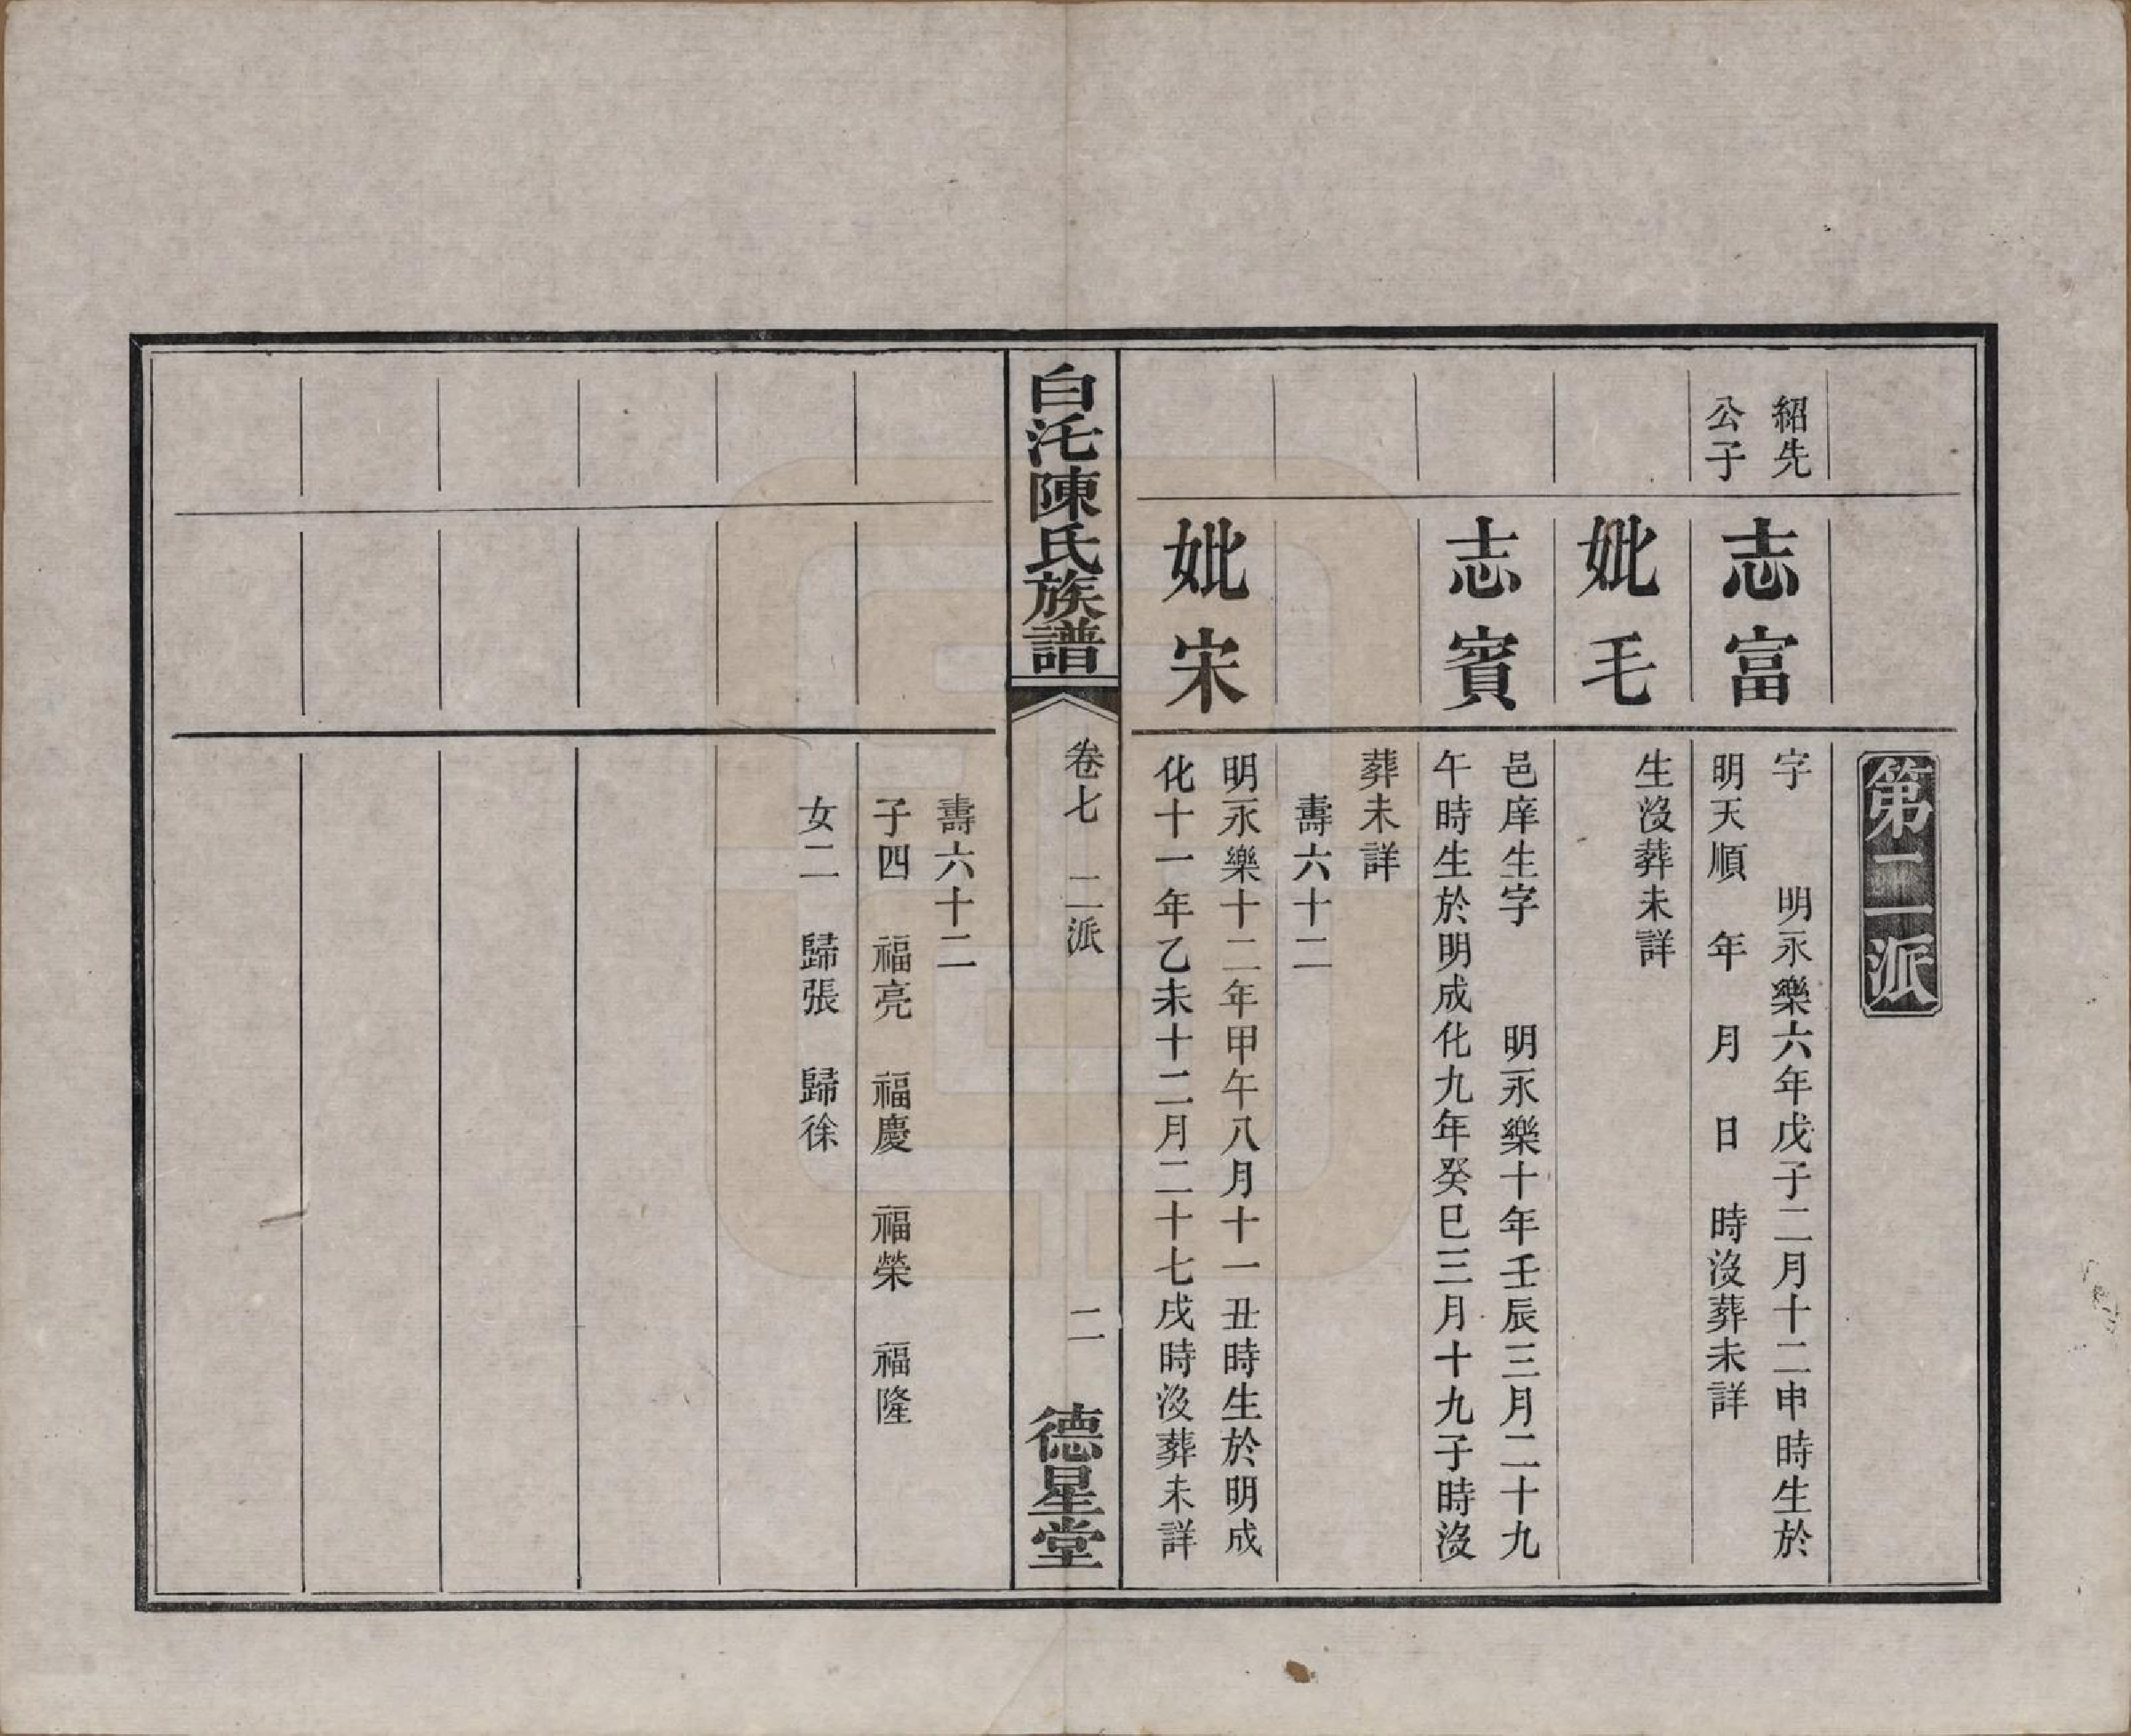 第二派
紹先
公子
志富
字　明永樂六年戊子二月十二申時生於
明天順　年　月　日　時沒葬未詳
妣毛
生沒葬未詳
志賓
邑庠生字　明永樂十年壬辰三月二十九
午時生於明成化九年癸巳三月十九子時沒
葬未詳
壽六十二
妣宋
明永樂十二年甲午八月十一丑時生於明成
化十一年乙未十二月二十七戌時沒葬未詳
白沱陳氏族譜
卷七　二派
二
德星堂
壽六十二
子四　福亮　福慶　福榮　福隆
女二　歸張　歸徐